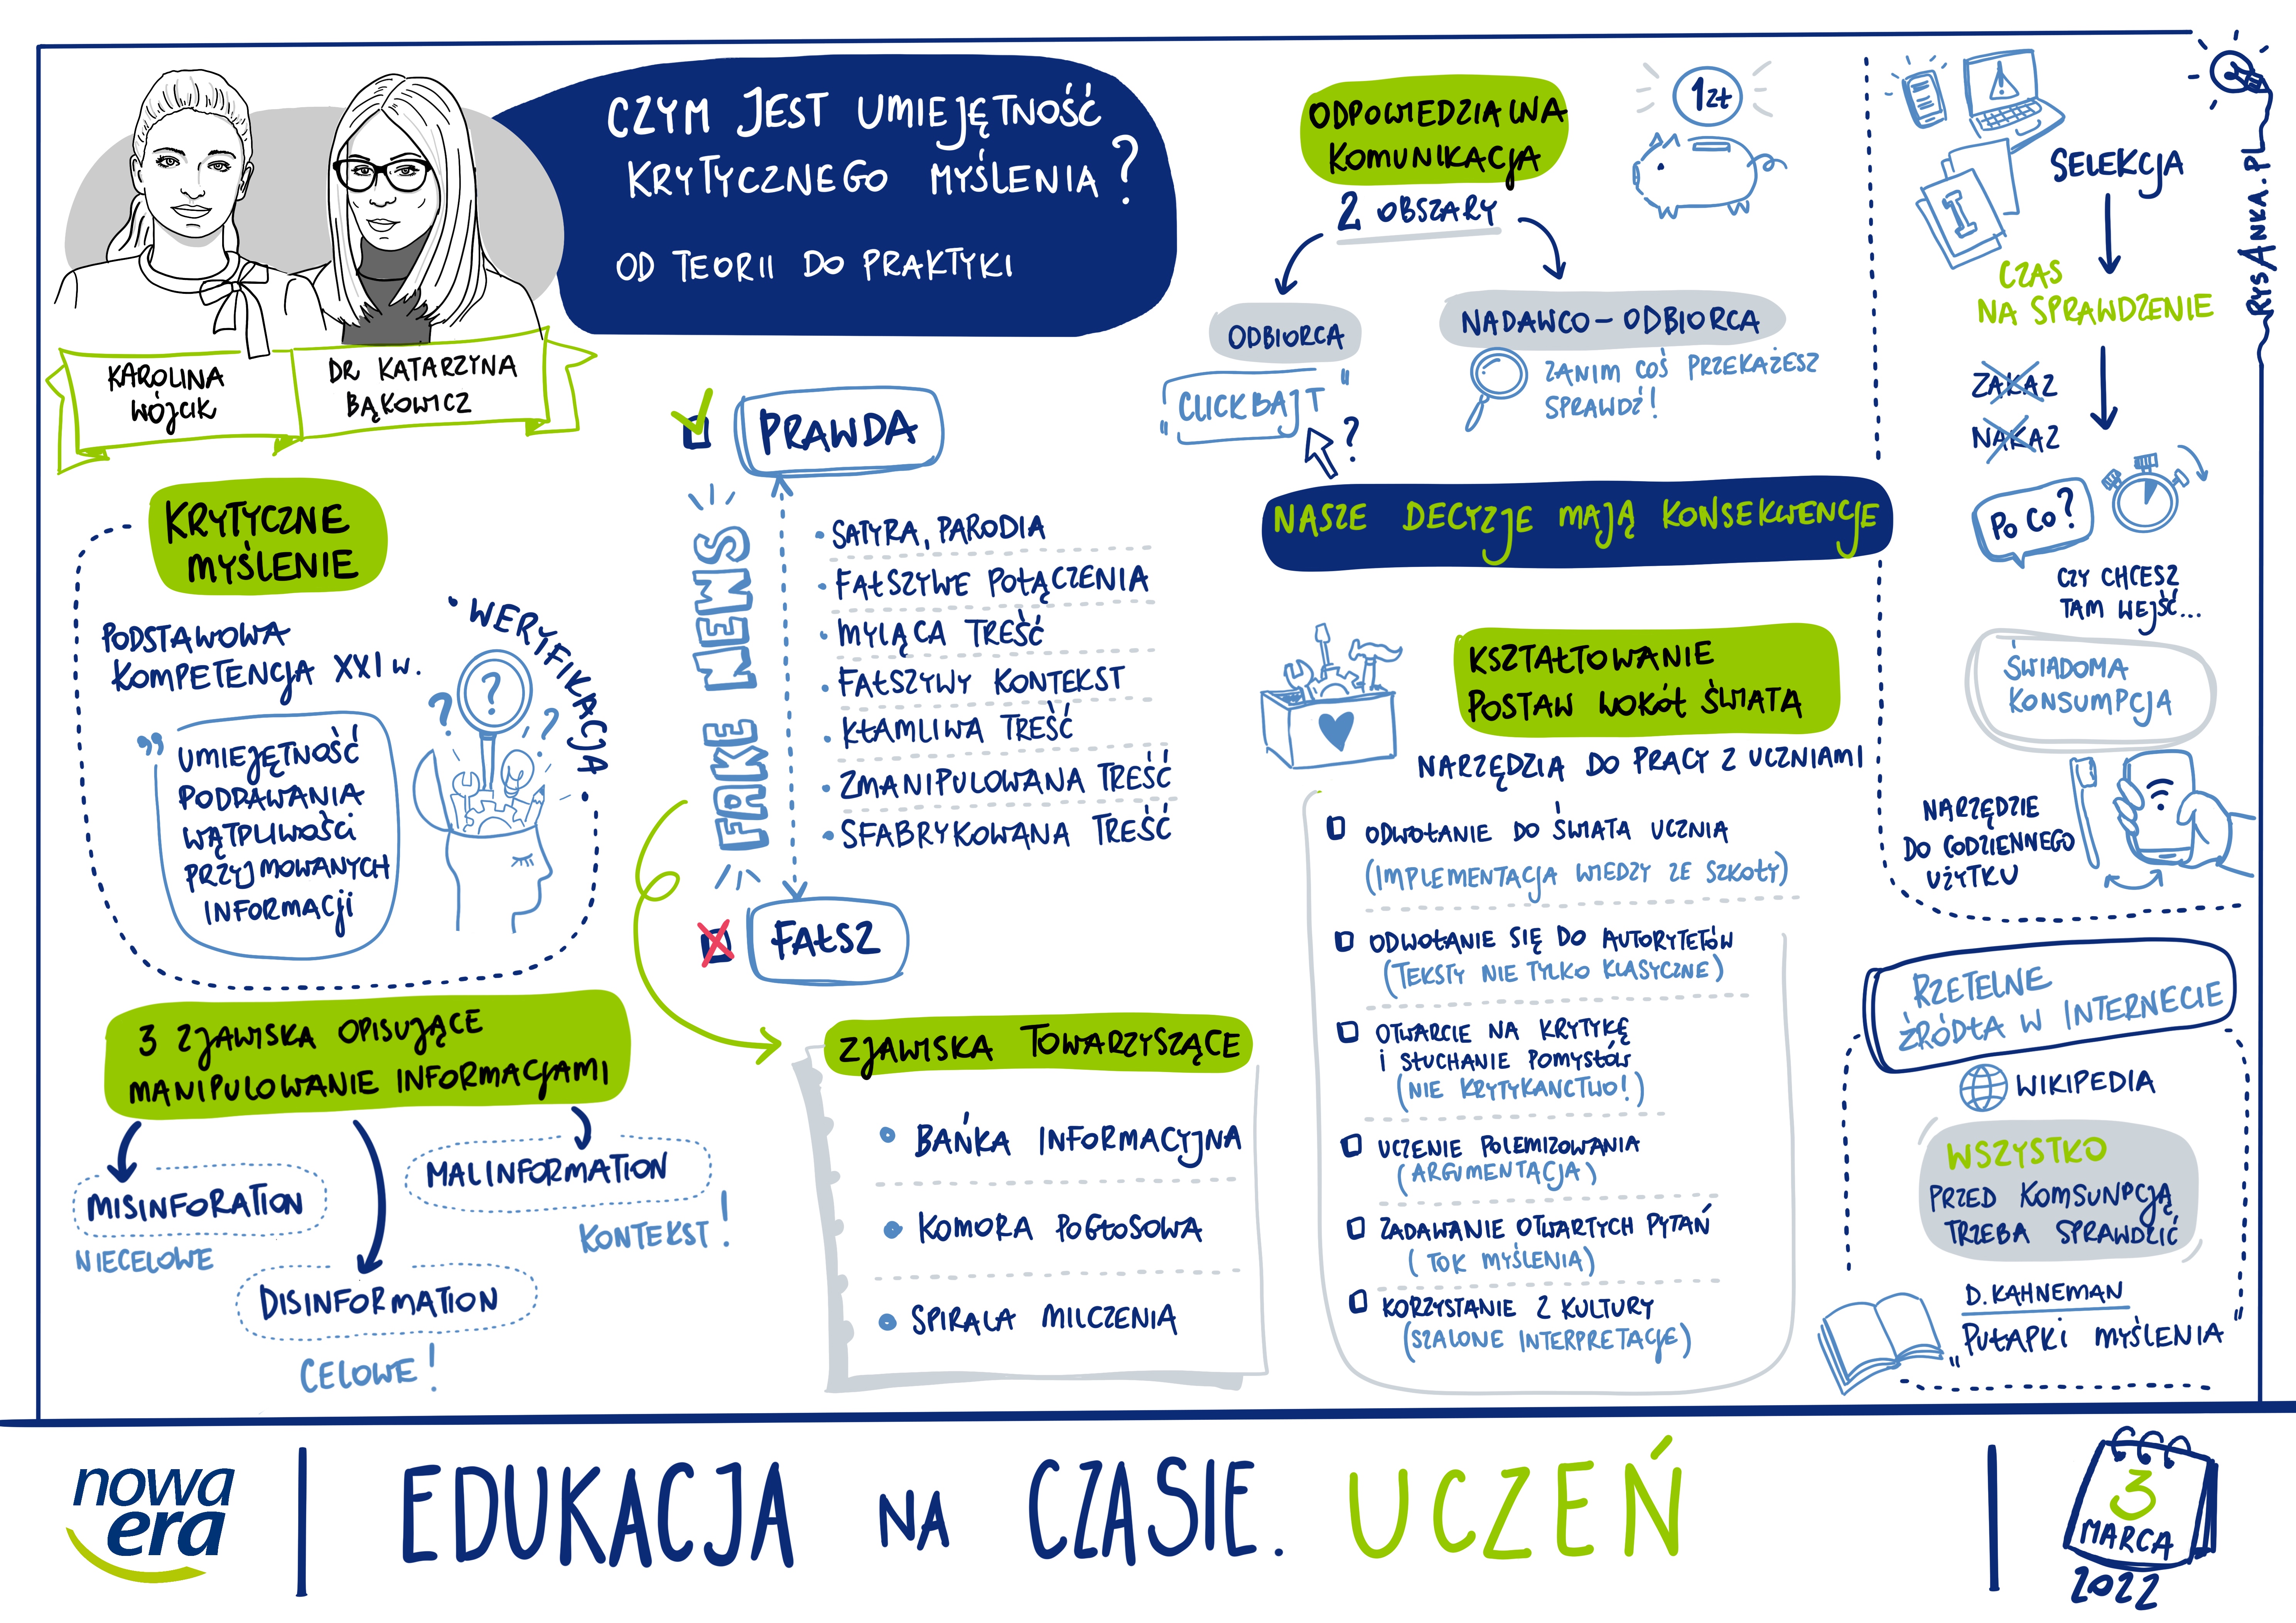 CZYM JEST UMIEJĘTNOŚĆ
KRYTYCZNEGO MYŚLENIA?
OD TEORII DO PRAKTYKI
KAROLINA
WÓJCIK
DR KATARZYNA
BĄKOWICZ
KRYTYCZNE
MYŚLENIE
PODSTAWOWA
KOMPETENCJA XXI W.
• WERYFIKACJA •
?
?
?
" UMIEJĘTNOŚĆ
PODDAWANIA
WĄTPLIWOŚCI
PRZYJMOWANYCH
INFORMACJI
3 ZJAWISKA OPISUJĄCE
MANIPULOWANIE INFORMACJAMI
MISINFORATION
NIECELOWE
DISINFORMATION
CELOWE!
MALINFORMATION
KONTEKST!
PRAWDA
FAKE NEWS
• SATYRA, PARODIA
• FAŁSZYWE POŁĄCZENIA
• MYLĄCA TREŚĆ
• FAŁSZYWY KONTEKST
• KŁAMLIWA TREŚĆ
• ZMANIPULOWANA TREŚĆ
• SFABRYKOWANA TREŚĆ
FAŁSZ
ZJAWISKA TOWARZYSZĄCE
• BAŃKA INFORMACYJNA
• KOMORA POGŁOSOWA
• SPIRALA MILCZENIA
ODPOWIEDZIALNA
KOMUNIKACJA
1 ZŁ
2 OBSZARY
ODBIORCA
"CLICKBAJT"
?
NADAWCO – ODBIORCA
ZANIM COŚ PRZEKAŻESZ
SPRAWDŹ!
NASZE DECYZJE MAJĄ KONSEKWENCJE
KSZTAŁTOWANIE
POSTAW WOKÓŁ ŚWIATA
NARZĘDZIA DO PRACY Z UCZNIAMI
ODWOŁANIE DO ŚWIATA UCZNIA
(IMPLEMENTACJA WIEDZY ZE SZKOŁY)
ODWOŁANIE SIĘ DO AUTORYTETÓW
(TEKSTY NIE TYLKO KLASYCZNE)
OTWARCIE NA KRYTYKĘ
I SŁUCHANIE POMYSŁÓW
(NIE KRYTYKANCTWO!)
UCZENIE POLEMIZOWANIA
(ARGUMENTACJA)
ZADAWANIE OTWARTYCH PYTAŃ
(TOK MYŚLENIA)
KORZYSTANIE Z KULTURY
(SZALONE INTERPRETACJE)
I
SELEKCJA
CZAS
NA SPRAWDZENIE
ZAKAZ
NAKAZ
PO CO?
CZY CHCESZ
TAM WEJŚĆ...
ŚWIADOMA
KONSUMPCJA
NARZĘDZIE
DO CODZIENNEGO
UŻYTKU
RZETELNE
ŹRÓDŁA W INTERNECIE
WIKIPEDIA
WSZYSTKO
PRZED KOMSUNPCJĄ
TRZEBA SPRAWDZIĆ
D. KAHNEMAN
"PUŁAPKI MYŚLENIA"
RYSANKA.PL
nowa
era
EDUKACJA NA CZASIE. UCZEŃ
3
MARCA
2022